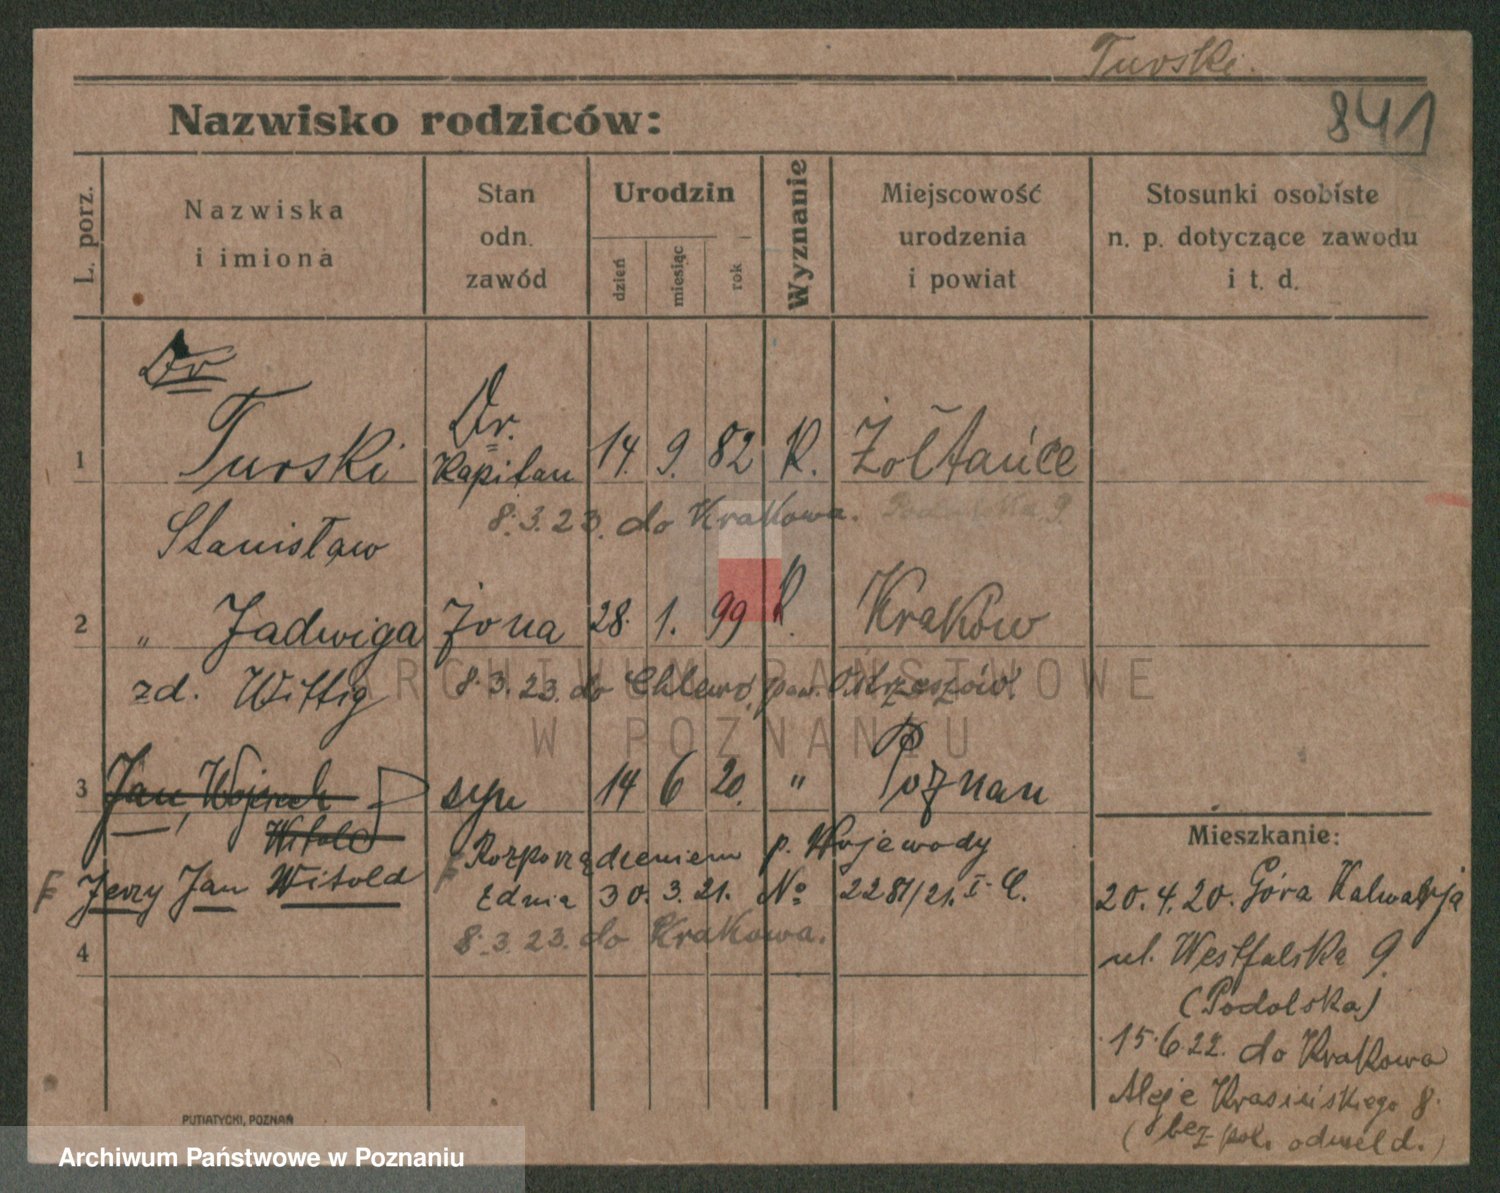 Turski.
841
Nazwisko rodziców:
L. porz.
Nazwiska
i imiona
Stan
odn.
zawód
Urodzin
dzień
miesiąc
rok
Wyznanie
Miejscowość
urodzenia
i powiat
Stosunki osobiste
n. p. dotyczące zawodu
i t. d.
Dr
1 Turski Dr. Kapitan 14. 9. 82 K. Żółtańce
Stanisław 8.3.23. do Krakowa. Podolska 9.
2 „ Jadwiga żona 28. 1. 99 K. Kraków
zd. Wittig 8.3.23. do Chlewo, pow. Ostrzeszów.
3 Jan, Wojciech syn 14 6 20. „ Poznan
Witold
F Jerzy Jan Witold
F Rozporządzeniem p. Wojewody
z dnia 30.3.21. No 2281/21. I. C.
8.3.23. do Krakowa.
4
Mieszkanie:
20.4.20. Góra Kalwarja
ul. Westfalska 9.
(Podolska)
15.6.22. do Krakowa
Aleje Krasińskiego 8.
(bez pol. odmeld.)
PUTIATYCKI, POZNAŃ
ARCHIWUM PAŃSTWOWE
W POZNANIU
Archiwum Państwowe w Poznaniu